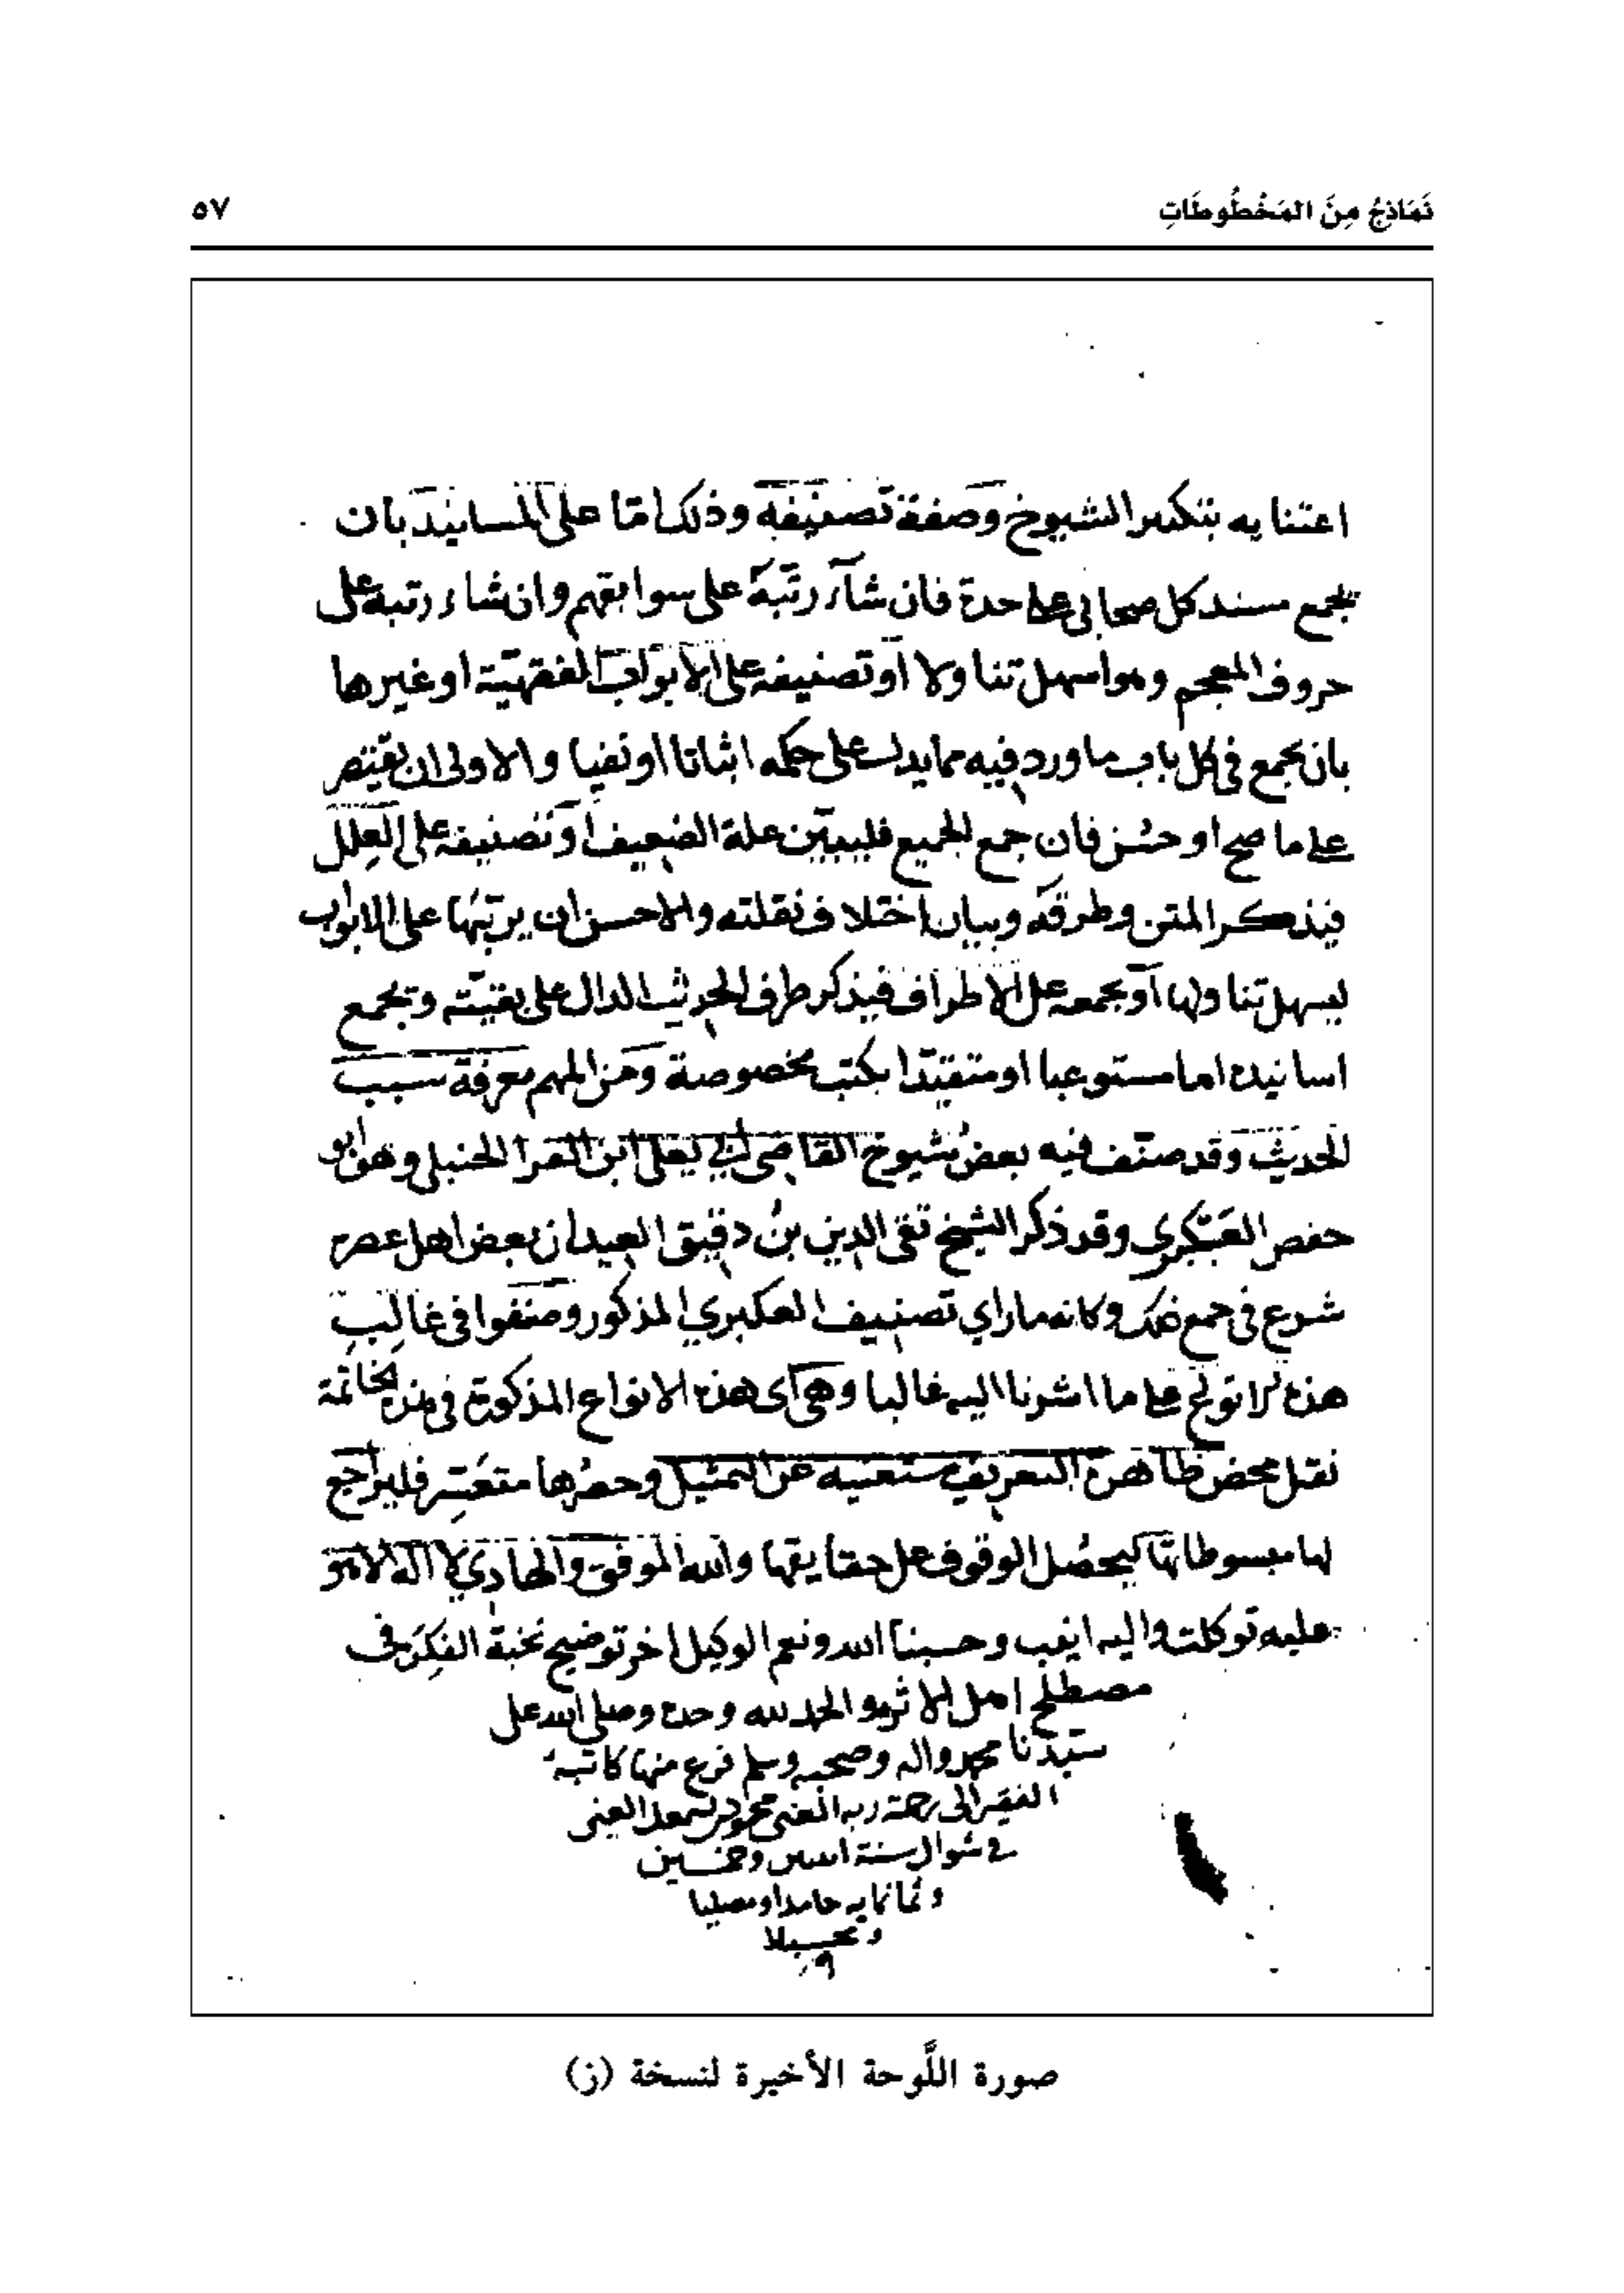 نَمَاذِجُ مِنَ المَخْطُوطَاتِ
٥٧
اعتنا به بتكثير الشيوخ وصفة تصنيفه وذلك امّا على المسانيد بان
يجمع مسند كل صحابي على حدة فان شآء رتبه على سوابقهم وان شاء رتبه على
حروف المعجم وهو اسهل تناولا أو تصنيفه على الابواب الفقهيّة او غيرها
بان يجمع في كل باب ما ورد فيه مما يدل على حكمه اثباتا او نفيا والاولى ان يقتصر
على ما صح او حسُن فان جمع الجميع فليبيّن علة الضعيف أو تصنيفه على العِلل
فيذكر المتن وطرقه وبيان اختلاف نقلته والاحسن ان يرتبها على الابواب
ليسهل تناولها أو يجمعه على الاطراف فيذكر طرف الحديث الدال على بقيّته ويجمع
اسانيده اما مستوعبا او متقيّدا بكتب مخصوصة ومن المهم معرفة سبب
الحديث وقد صنّف فيه بعض شيوخ القاضي ابي يعلى ابن الفرا الحنبلي وهو ابو
حفص العكبري وقد ذكر الشيخ تقي الدين بن دقيق العيد ان بعض اهل عصره
شرع في جمع ذلك وكانه ما راي تصنيف العكبري المذكور وصنفوا في غالب
هذه الانواع على ما اشرنا اليه غالبا وهي أى هذه الانواع المذكورة في هذه الخاتمة
نقل محض ظاهرة التعريف مستغنيه عن التمثيل وحصرها متعسّر فليراجع
لها مبسوطاتها ليحصُل الوقوف على حقايقها والله الموفق والهادي لا اله الا هو
عليه توكلت واليه انيب وحسبنا الله ونعم الوكيل اخر توضيح نخبة الفِكَر في
مصطلح اهل الاثر والحمد لله وحده وصلى الله على
سيّدنا محمد واله وصحبه وسلم فرغ منها كاتبه
الفقير الى رحمة ربه الغني محمود
في شوال سنة اثنين وخمسين
وثمانمايه حامدا ومصليا
ومحسبلا
صورة اللَّوحة الأخيرة لنسخة (ز)